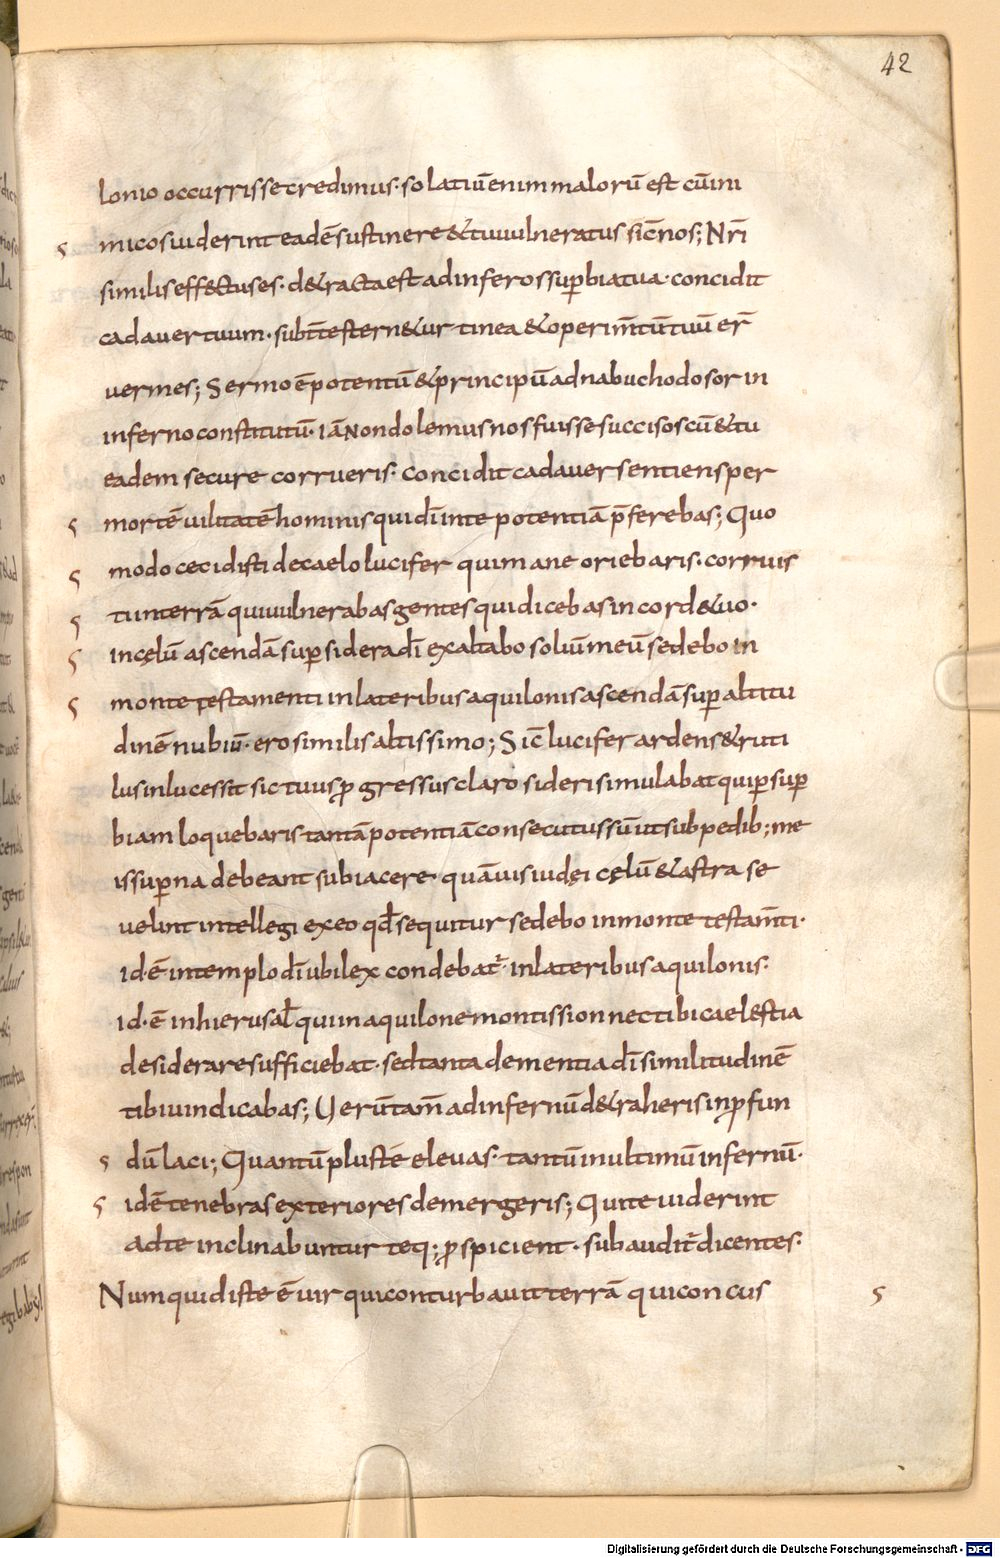 42
lonio occurrisse credimus· solatiū enim malorū est cū ini
micos uiderint eadē sustinere & tu uulneratus sic̄ nos; Nr̄i
similis effectus es· detracta est ad inferos sup̱bia tua· concidit
cadauer tuum· subt̄ te sternetur tinea & operim̄tū tuū er̄
uermes; Sermo ē potentū & principū ad nabuchodosor in
inferno constitutū· iā Non dolemus nos fuisse succisos cū & tu
eadem secure corrueris· concidit cadauer sentiens per
mortē uilitatē hominis qui dī in te potentiā p̄ferebas; Quo
modo cecidisti de caelo lucifer qui mane oriebaris· corruis
ti in terrā qui uulnerabas gentes qui dicebas in corde tuo·
in cęlū ascendā sup̱ sidera dī exaltabo soliū meū sedebo in
monte testamenti in lateribus aquilonis ascendā sup̱ altitu
dinē nubiū· ero similis altissimo; Sic̄ lucifer ardens & ruti
lus inlucessit sic tuus ꝓgressus claro sideri simulabat qui p̱ sup̱
biam loquebaris tantā potentiā consecutus sū ut sub pedib; me
is sup̱na debeant subiacere· quāuis iudęi cęlū & astra se
uelint intellegi ex eo qđ sequitur sedebo in monte testam̄ti·
id·ē in templo dī ubi lex condebatr̄· in lateribus aquilonis·
id·ē in hierusal̄ qui in aquilone montis sion nec tibi caelestia
desiderare sufficiebat· sed tanta dementia dī similitudinē
tibi uindicabas; Uerūtam̄ ad infernū detraheris in ꝓfun
dū laci; Quantū plus te eleuas· tantū in ultimū infernū·
id ē tenebras exteriores demergeris; Qui te uiderint
ad te inclinabuntur teq; ꝓspicient· subaudit̄ dicentes·
Numquid iste ē uir qui conturbauit terrā qui concus
Digitalisierung gefördert durch die Deutsche Forschungsgemeinschaft - DFG